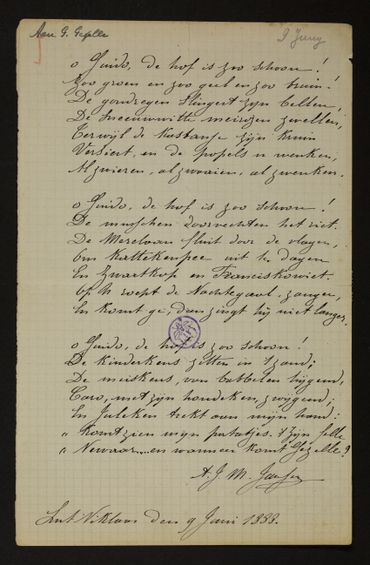 Aan G. Gezelle
9 Juny
o Guido, de hof is zoo schoon!
Zoo groen en zoo geel en zoo bruin!
De goudregen slingert zijn bellen,
De Sneeuwwitte meirozen zwellen,
Terwijl de Kastanje zijn kruin
Versiert, en de popels u wenken,
Al zwieren, al zwaaien, al zwenken.
o Guido, de hof is zoo schoon!
De musschen doorvechten het riet.
De Merelaan fluit door de vlagen,
Om Kattekenspee uit te dagen
En Zwartkop en Franciskowiet.
Of U roept de Nachtegaal zanger,
En komt ge, dan zingt hij niet langer.
o Guido, de hof is zoo schoon!
De kinderkens zitten in 't zand;
De meiskens, van babbelen hijgend,
Caro, met zijn hondeken, zwijgend;
En Juleken trekt aan mijn hand:
" Komt zien mijn patatjes. 't Zijn felle
" Newaar... en wanneer komt Gezelle?
A. J. M. Janssen
Sint Niklaas den 9 Juni 1888.